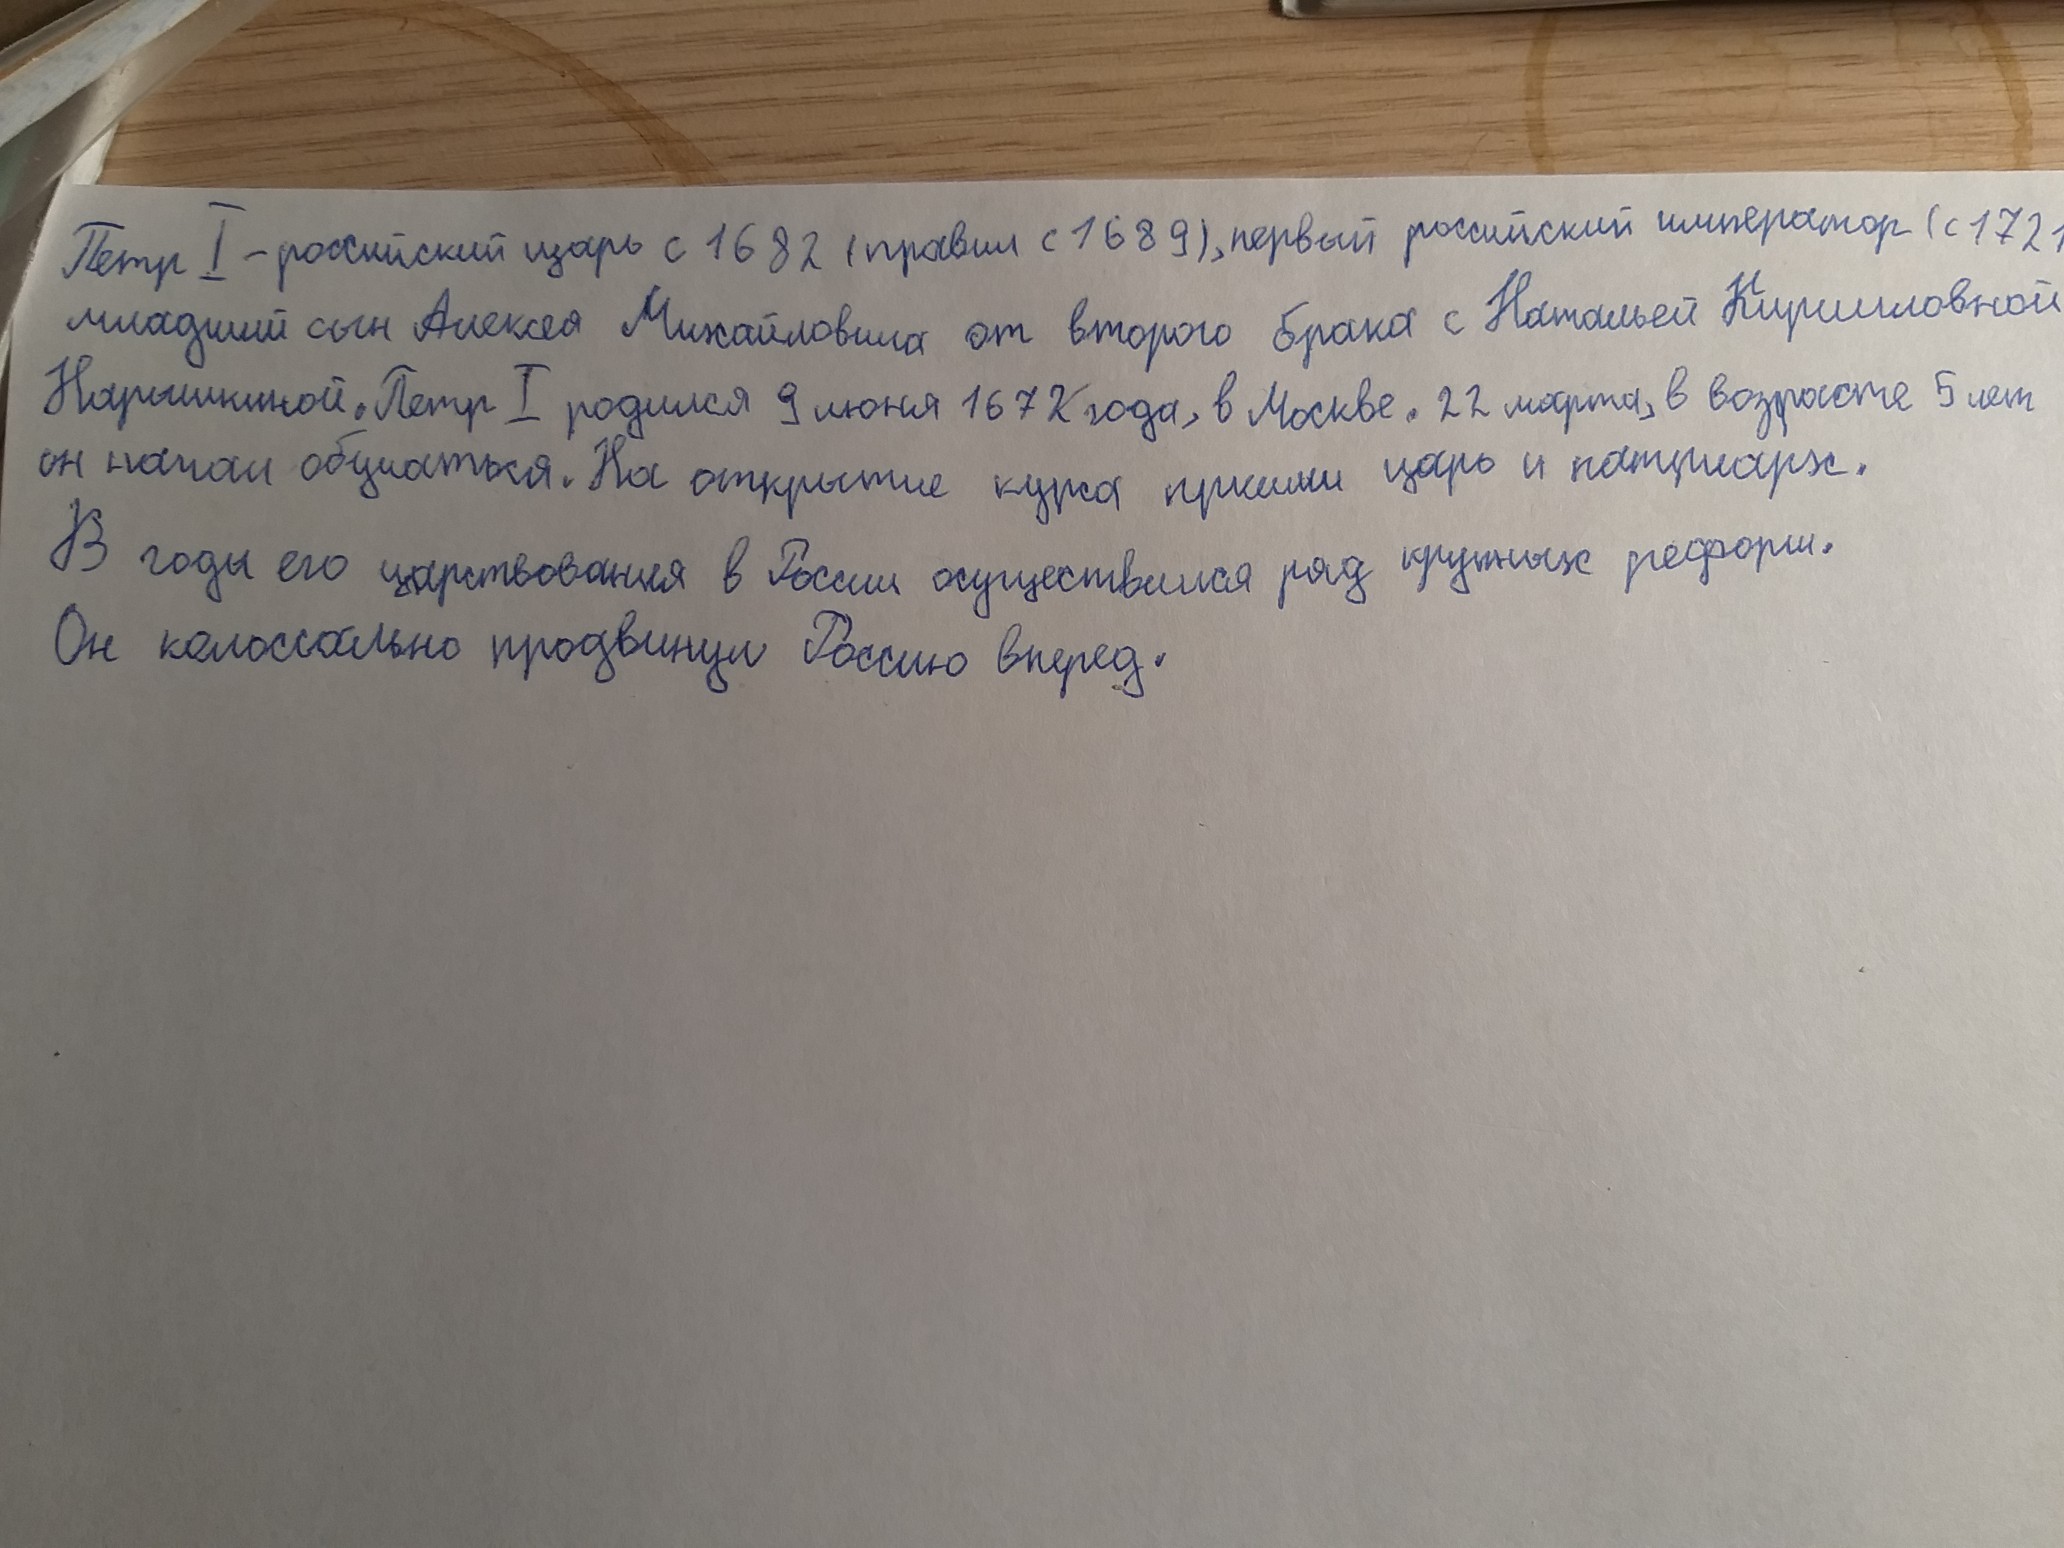 Петр I - российский царь с 1682 (правил с 1689), первый российский император (с 1721
младший сын Алексея Михайловича от второго брака с Натальей Кирилловной
Нарышкиной. Петр I родился 9 июня 1672 года, в Москве. 22 марта, в возрасте 5 лет
он начал обучаться. На открытие курса пришли царь и патриарх.
В годы его царствования в России осуществился ряд крупных реформ.
Он колоссально продвинул Россию вперед.